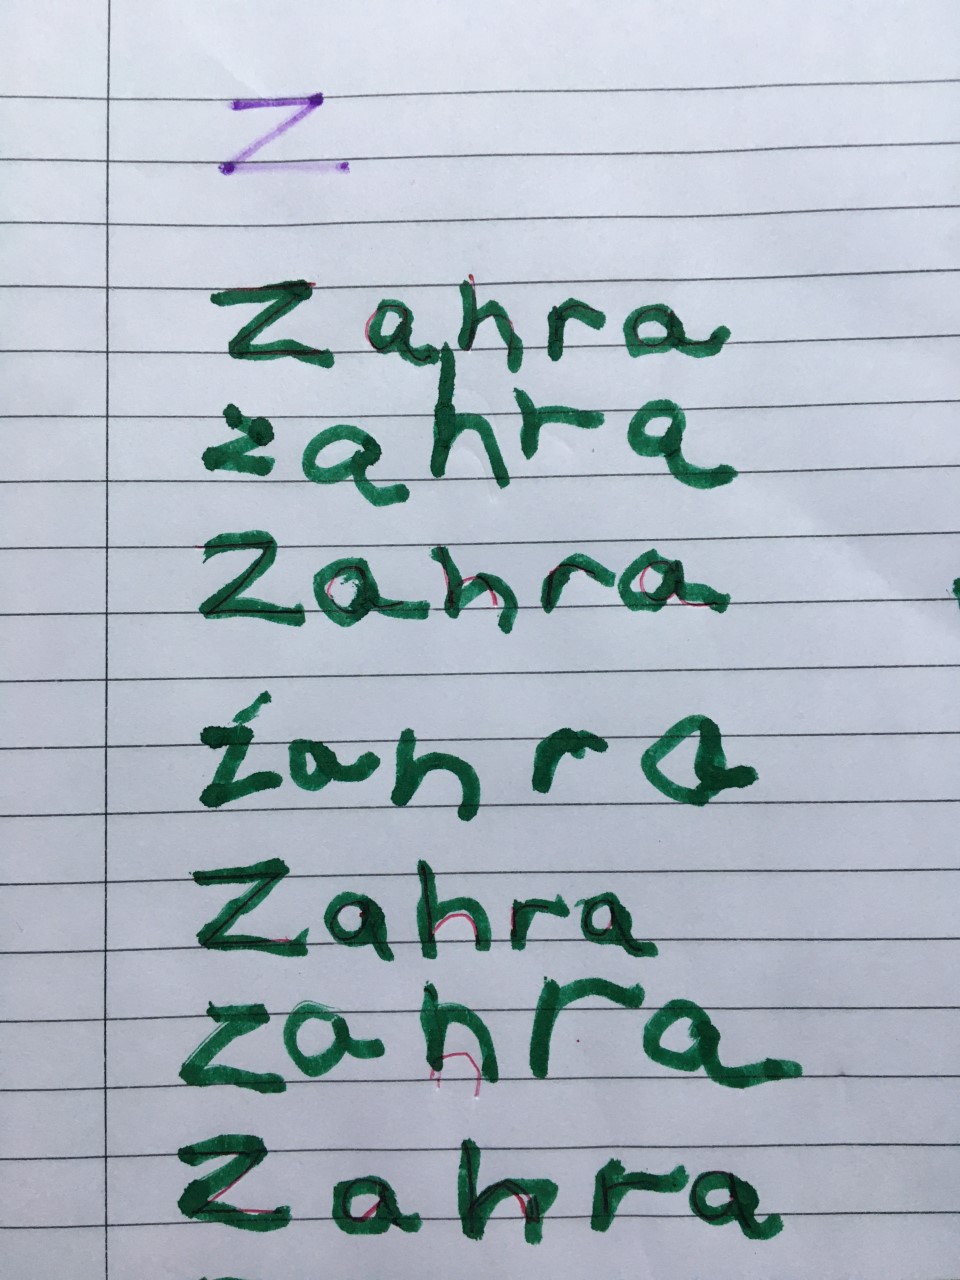 Z
Zahra
zahra
Zahra
zahra
Zahra
zahra
Zahra